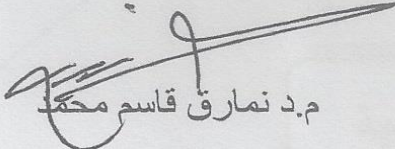 م.د نمارق قاسم محمد